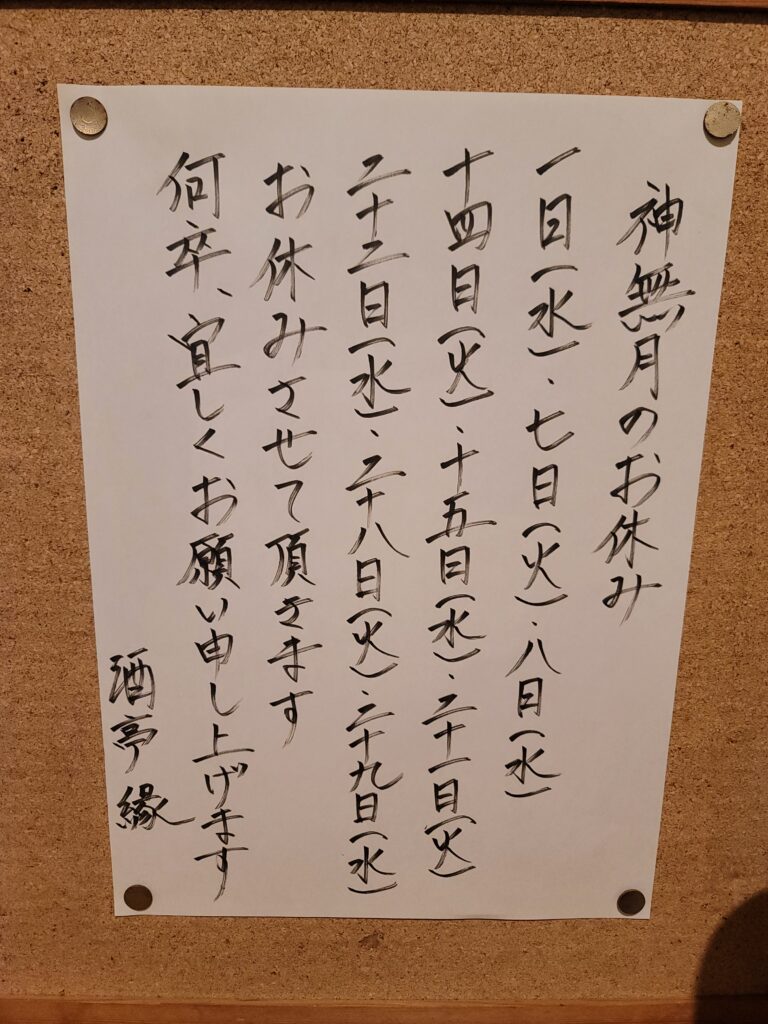 神無月のお休み
一日(水)、七日(火)、八日(水)
十四日(火)、十五日(水)、二十一日(火)
二十二日(水)、二十八日(火)、二十九日(水)
お休みさせて頂きます
何卒、宜しくお願い申し上げます
酒亭 縁